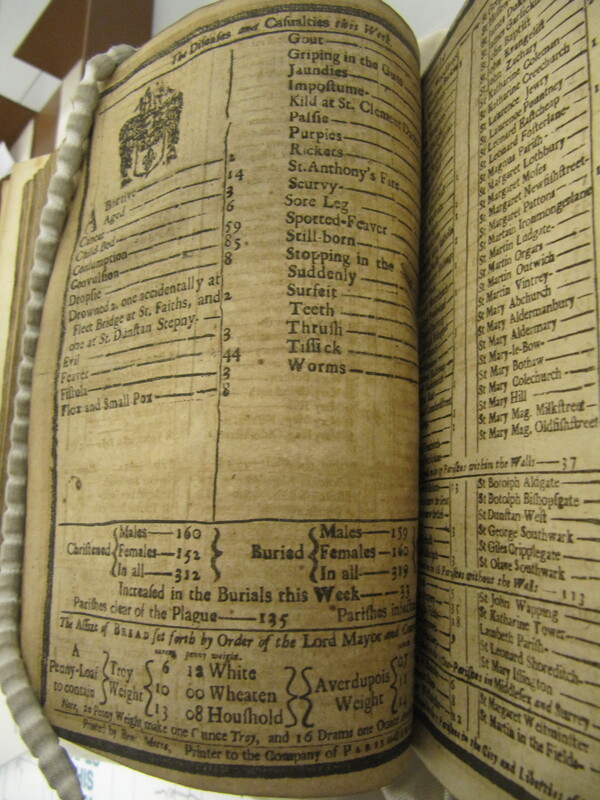 The Diseases and Casualties this Week
Abortive 2
Aged 14
Cancer 3
Child-Bed 6
Consumption 59
Convulsion 85
Dropsie 8
Drowned 2, one accidentally at
Fleet Bridge at St. Faiths, and 2
one at St. Dunstan Stepny.
Evil 3
Feaver 44
Fistula 3
Flox and Small Pox 8
Gout
Griping in the Guts
Jaundies
Impostume
Kild at St. Clement
Palsie
Purples
Rickets
St. Anthony's Fire
Scurvy
Sore Leg
Spotted-Feaver
Still-born
Stopping in the
Suddenly
Surfeit
Teeth
Thrush
Tissick
Worms
Christened { Males 160
Females 152
In all 312 }
Buried { Males 159
Females 160
In all 319
Increased in the Burials this Week 33
Parishes clear of the Plague 135 Parishes
The Assize of BREAD set forth by Order of the Lord Mayor and
A Penny-Loaf to contain { Troy Weight { 6 12 White
10 00 Wheaten
13 08 Houshold } Averdupois Weight {
Note, 20 Penny Weight make one Ounce Troy, and 16 Drams one Ounce
Printer to the Company of
St Katharine Coleman
St Katharine Creechurch
St Laurence Jewry
St Laurence Pountney
St Leonard Eastcheap
St Leonard Fosterlane
St Magnus Parish
St Margaret Lothbury
St Margaret Moses
St Margaret Newfishstreet
St Margaret Pattons
St Martin Ironmongerlane
St Martin Ludgate
St Martin Orgars
St Martin Outwich
St Martin Vintrey
St Mary Abchurch
St Mary Aldermanbury
St Mary Aldermary
St Mary-le-Bow
St Mary Bothaw
St Mary Colechurch
St Mary Hill
St Mary Mag. Milkstreet
St Mary Mag. Oldfishstreet
Parishes within the Walls 37
St Botolph Aldgate
St Botolph Bishopsgate
St Dunstan West
St George Southwark
St Giles Cripplegate
St Olave Southwark
Parishes without the Walls 113
St John Wapping
St Katharine Tower
Lambeth Parish
St Leonard Shoreditch
St Mary Islington
Parishes in Middlesex and Surrey
St Margaret Westminster
St Martin in the Fields
Parishes in the City and Liberties of